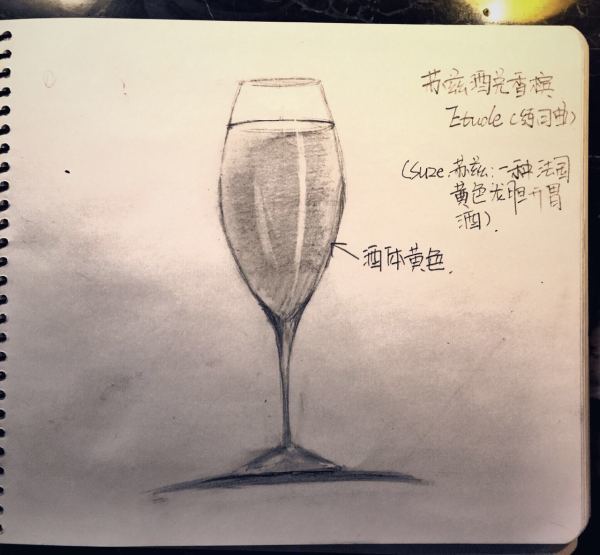 苏兹酒兑香槟
Etude (练习曲)
(Suze 苏兹:一种法国
黄色龙胆开胃
酒).
酒体黄色.